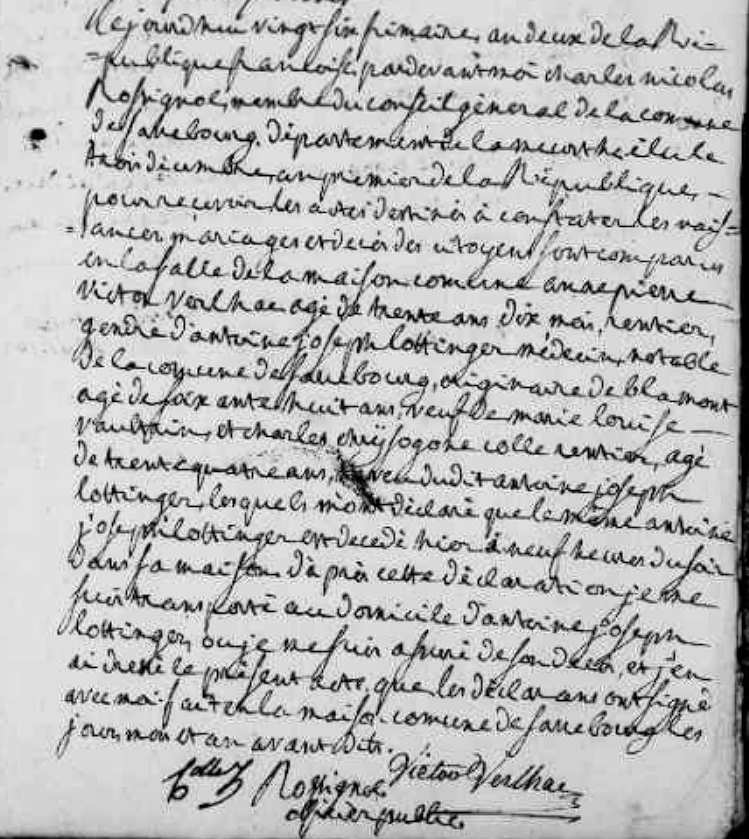 Cejourdhui vingt six frimaire, an deux de la Ré=
=publique francoise, pardevant moi charles nicolas
Rossignol, membre du conseil général de la commune
de Sarrebourg, département de la meurthe, élu le
trois décembre, an premier de la République, —
pour recevoir les actes destinés à constater les nais=
=sances, mariages et décès des citoyens sont comparus
en la salle de la maison comune anne pierre
Victor Verlhac agé de trente ans dix mois, rentier,
gendre d'antoine joseph lottinger médecin, notable
de la comune de Sarrebourg, originaire de blamont
agé de soixante huit ans, veuf de marie louise —
vaultrin, et charles chrysogone colle rentier, agé
de trente quatre ans, neveu dudit antoine joseph
lottinger, lesquels m'ont déclaré que le même antoine
joseph lottinger est decedé hier à neuf heures du soir
dans sa maison. D'après cette déclaration je me
suis transporté au domicile d'antoine joseph
lottinger, ou je me suis assuré de son decès, et j'en
ai dressé le présent acte, que les déclarans ont signé
avec moi. fait en la maison comune de Sarrebourg les
jour, mois et an avant dits.
Colle Rossignol Victor Verlhac
officier public